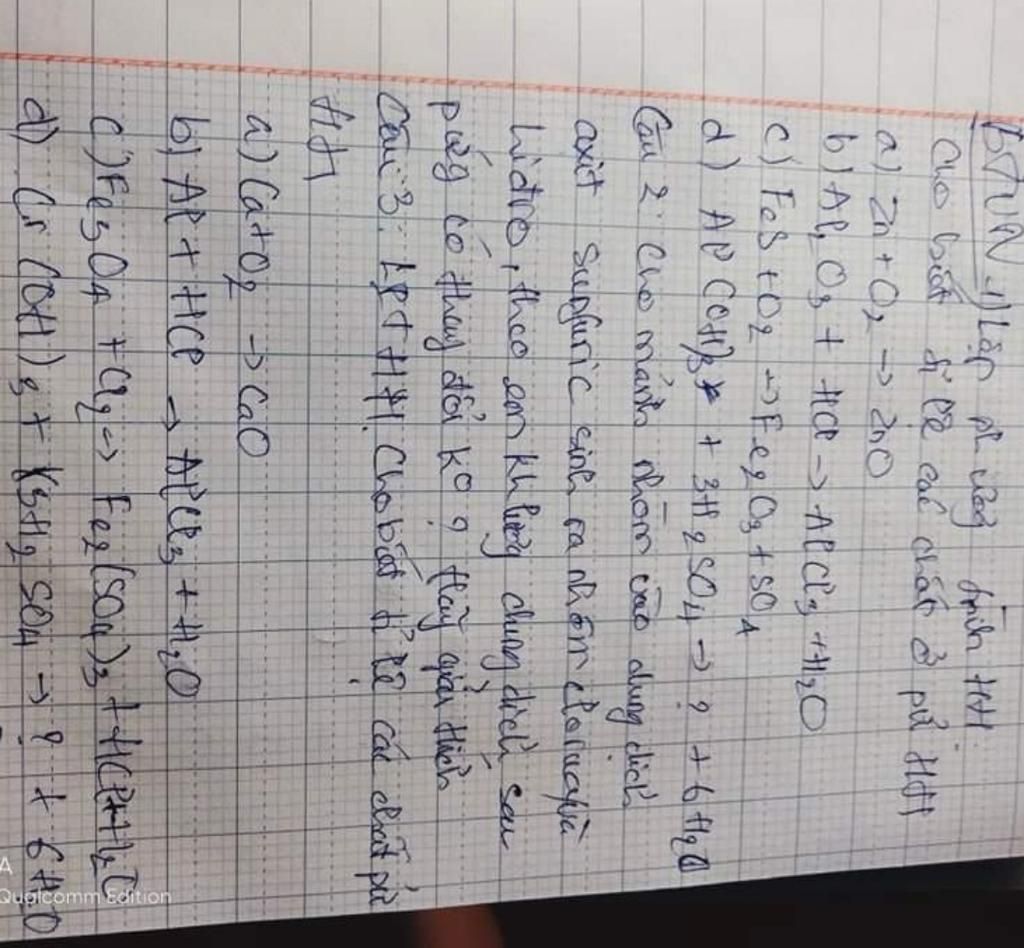 BTVN 1) Lập ph ứng trình HH
Cho biết tỉ lệ các chất ở pứ HH
a) Zn + O₂ → ZnO
b) Al₂O₃ + HCl → AlCl₃ + H₂O
c) FeS + O₂ → Fe₂O₃ + SO₄
d) Al(OH)₃ + 3H₂SO₄ → ? + 6H₂O
Câu 2: Cho mảnh nhôm vào dung dịch
axit Sunfuric sinh ra nhôm clorua và
hiđro, theo em kh lượng dung dịch sau
pứng có thay đổi ko? Hãy giải thích
Câu 3: LPTHH. Cho biết tỉ lệ các chất pứ
HH
a) Ca + O₂ → CaO
b) Al + HCl → AlCl₃ + H₂O
c) Fe₃O₄ + Cl₂ → Fe₂(SO₄)₃ + HCl + H₂O
d) Cr(OH)₃ + 3H₂SO₄ → ? + 6H₂O
A
Qualcomm Edition